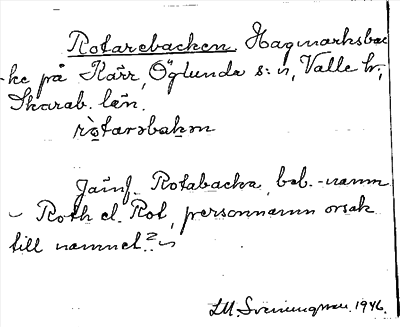 Rotarebacken, Hagmarksbac-
ke på Kärr, Öglunda s:n, Valle hd,
Skarab. län.
rò̤tarəbakən
Jämf. Rotabacka, beb.-namn
– Roth el. Rot, personnamn orsak
till namnet?
L.M. Svenungsson. 1946.